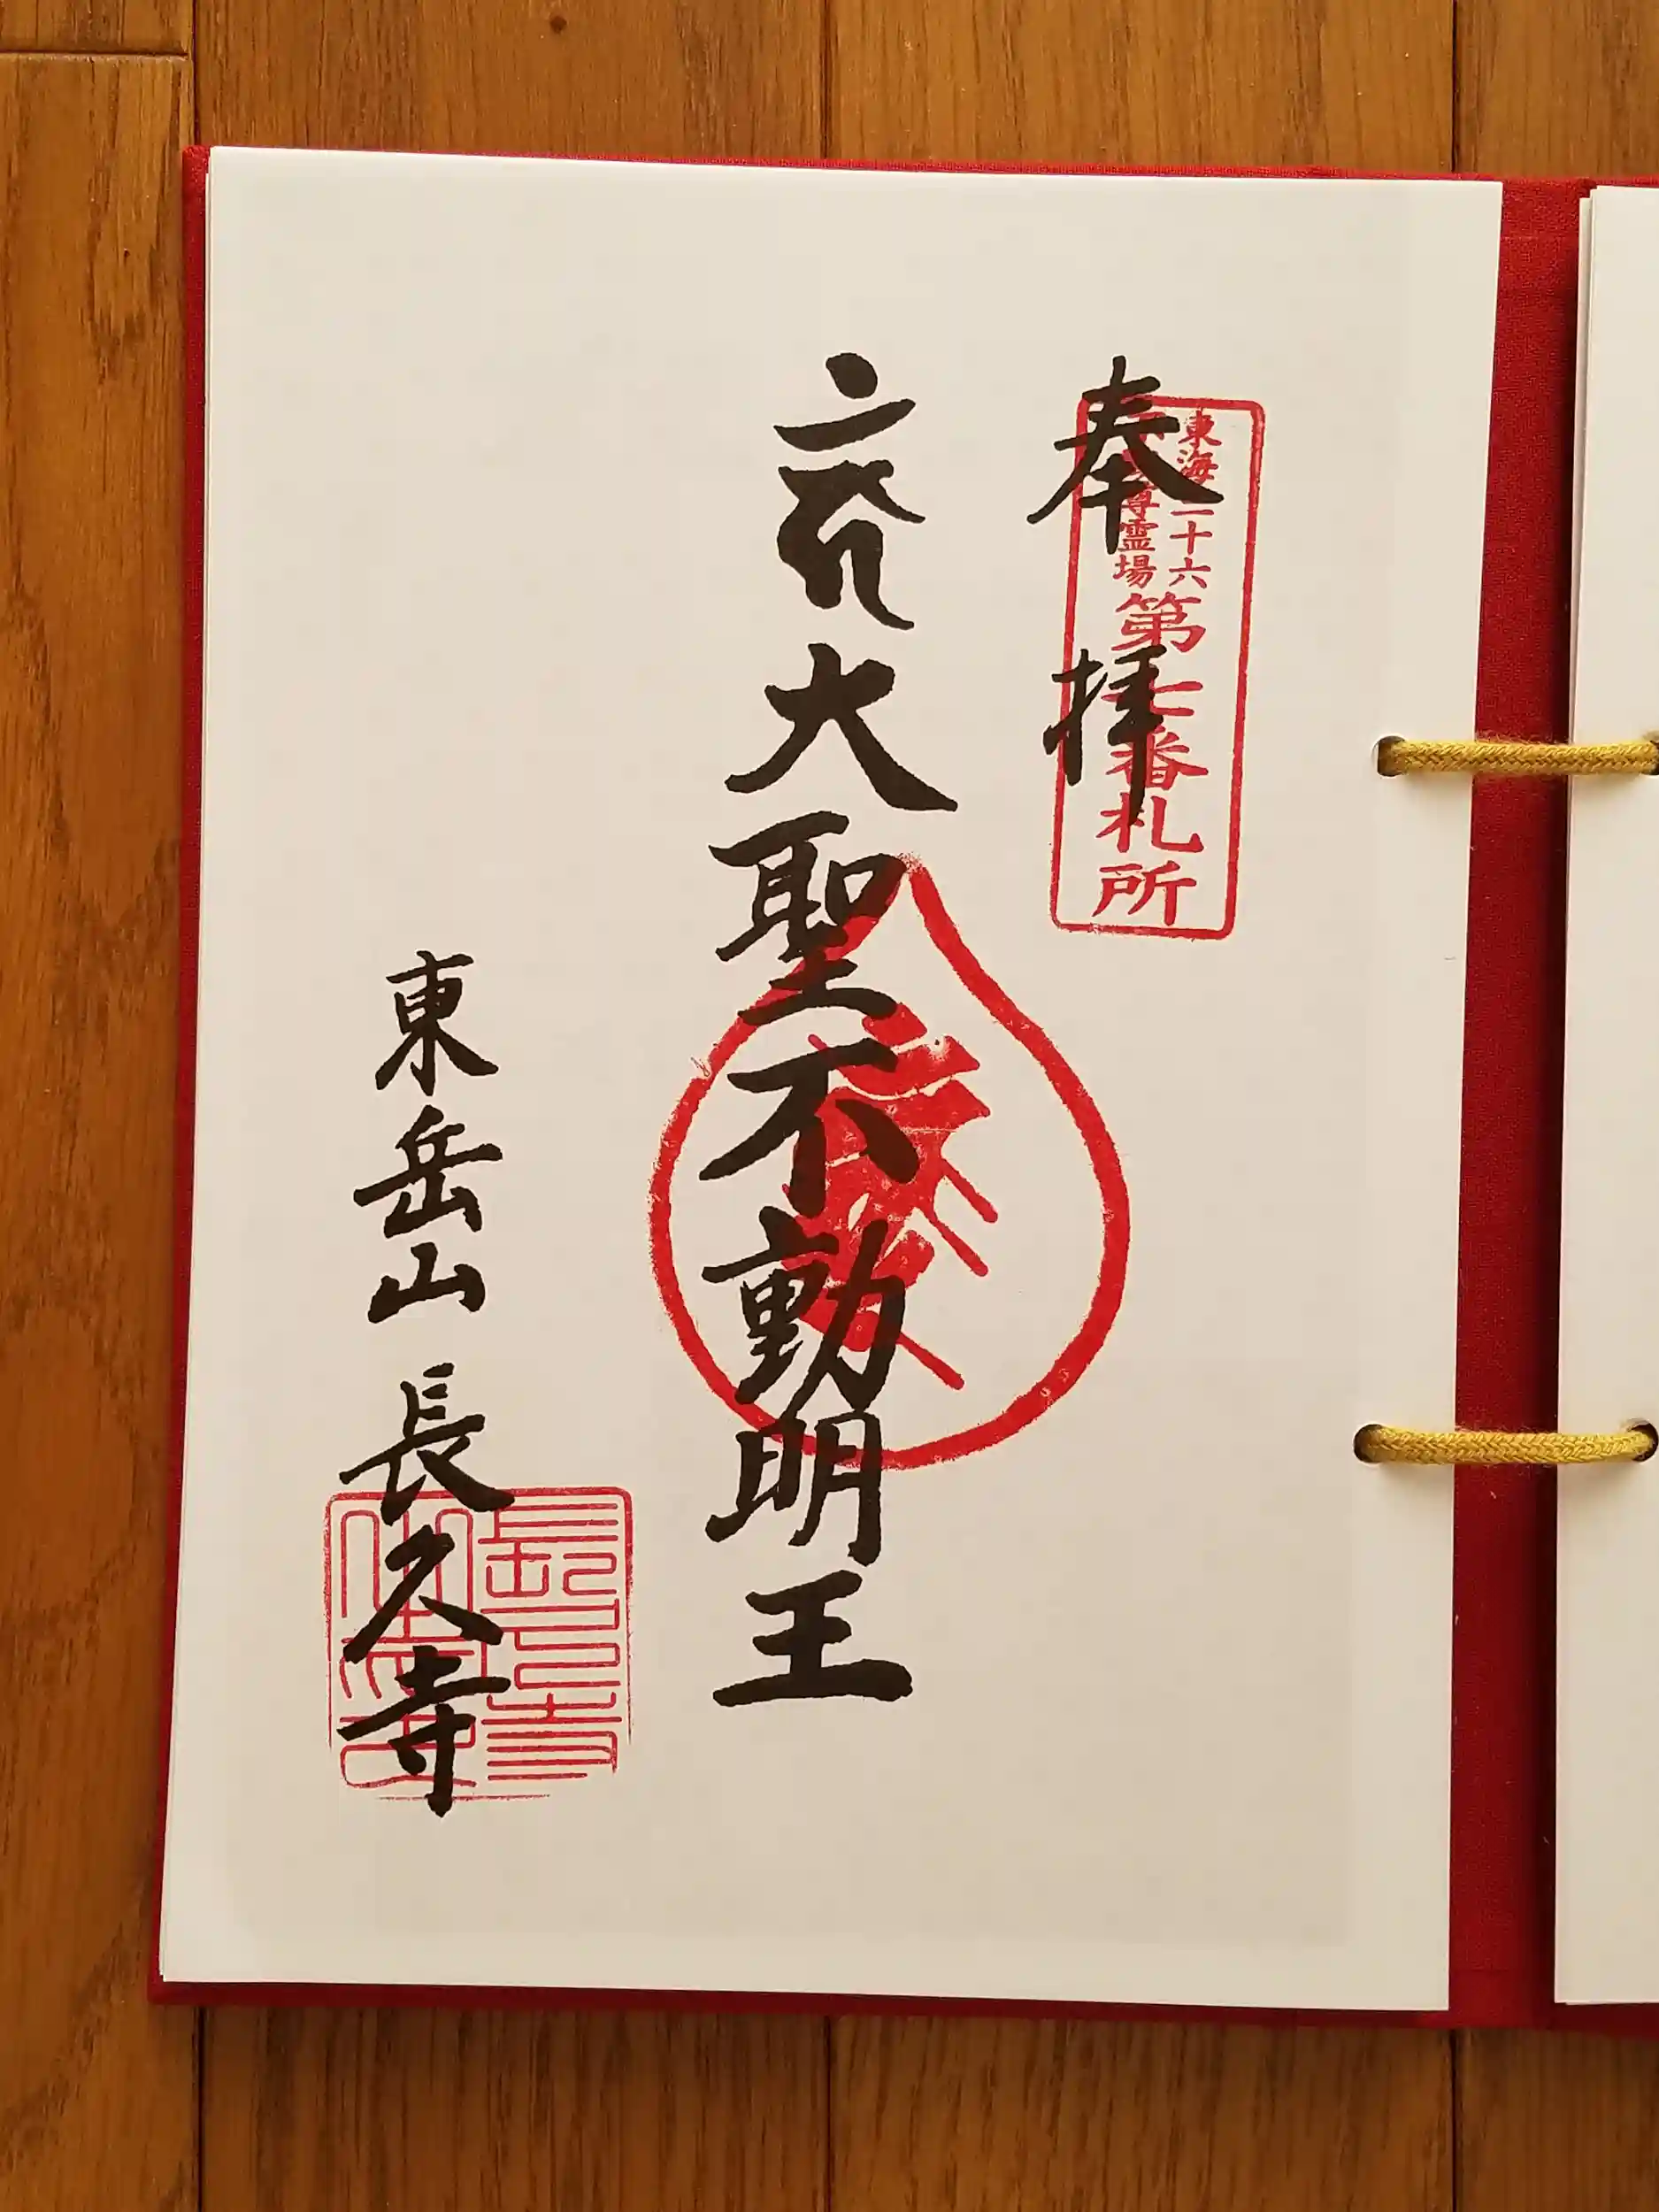 奉拝
東海三十六
不動尊霊場
第七番札所
大聖不動明王
東岳山 長久寺
長久寺